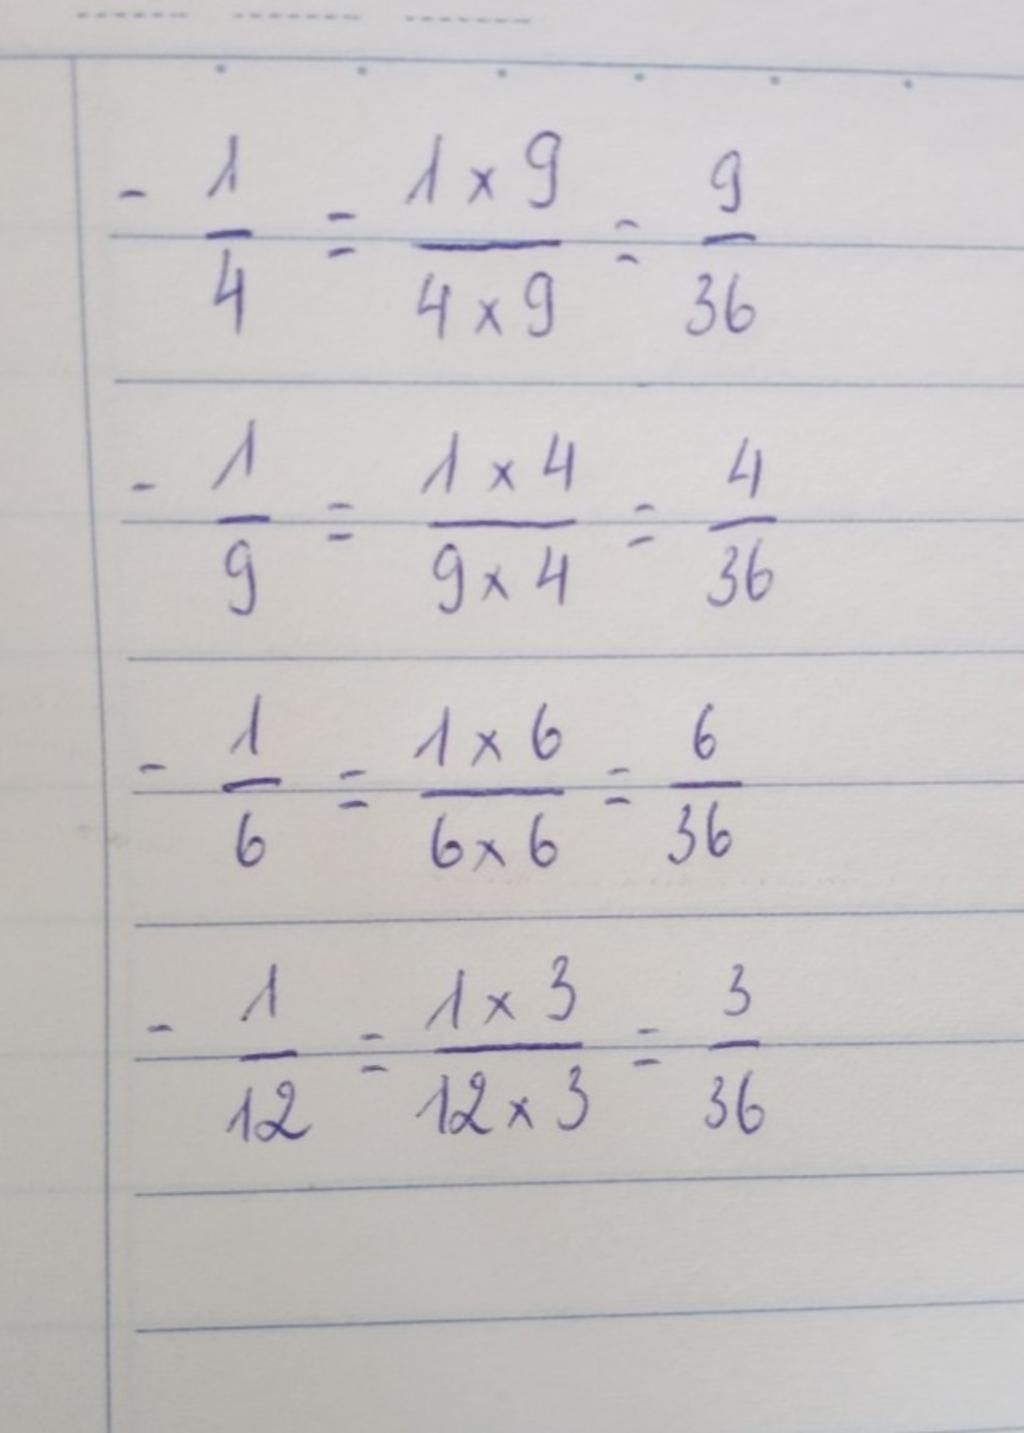 - 1/4 = 1 × 9 / 4 × 9 = 9/36
- 1/9 = 1 × 4 / 9 × 4 = 4/36
- 1/6 = 1 × 6 / 6 × 6 = 6/36
- 1/12 = 1 × 3 / 12 × 3 = 3/36